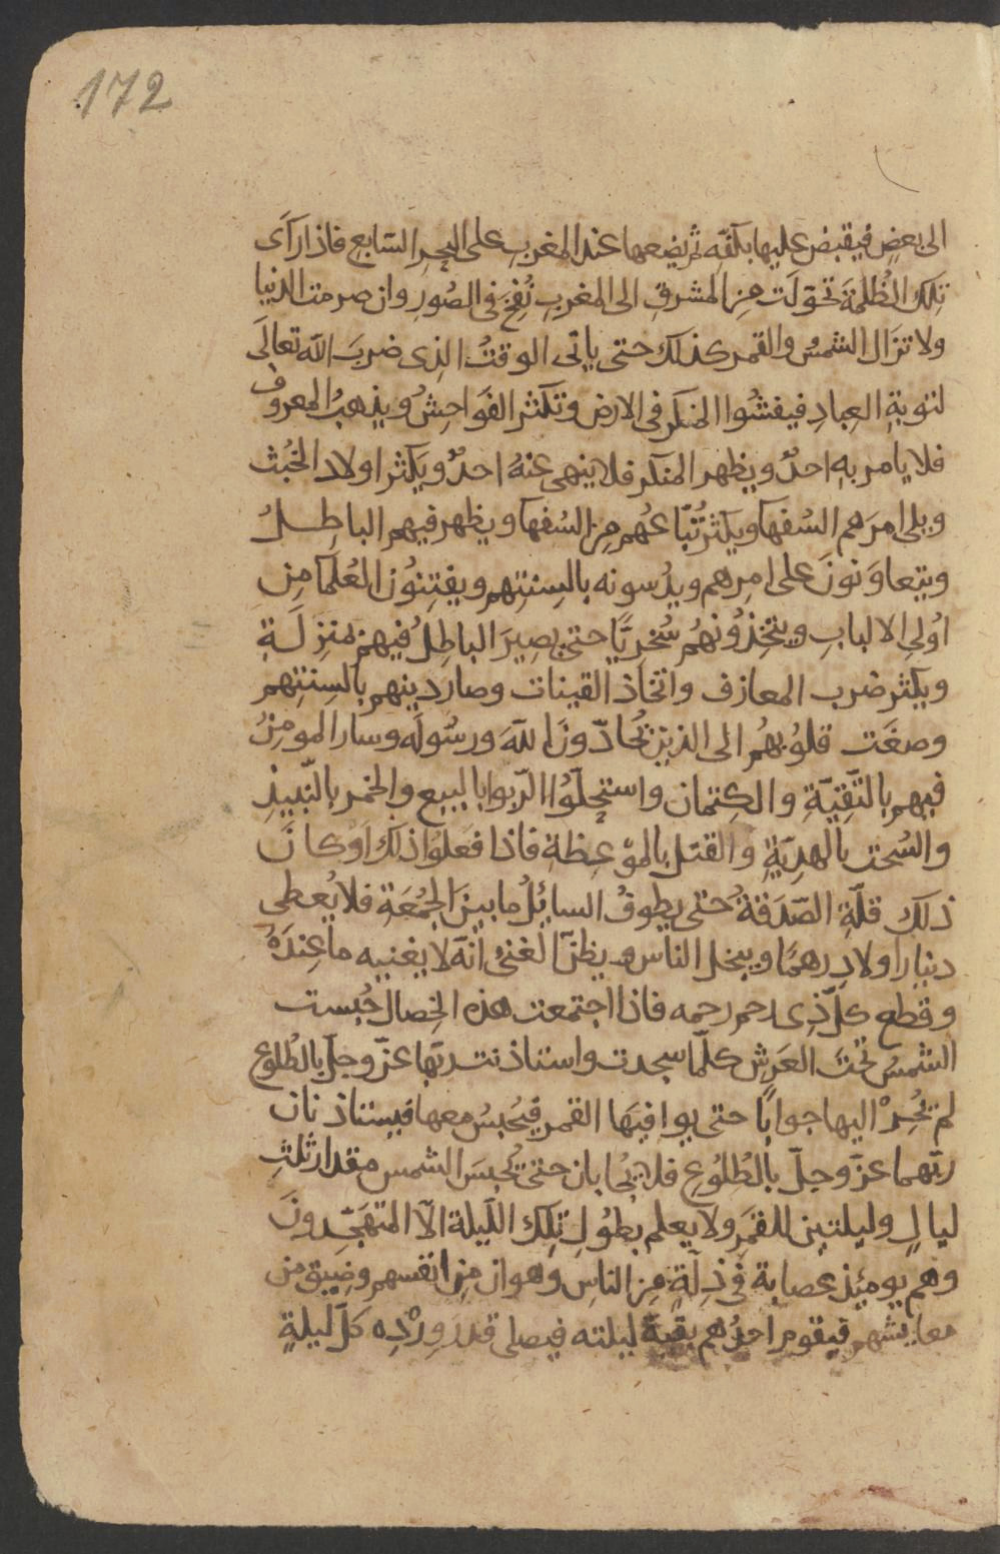 172
الى بعضٍ فيقبض عليها بكفّه ثم يضعها عند المغربِ على البحرِ السّابعِ فاذا رَآى
تِلكَ الظُلمَةَ تحوّلَت مِن المشرقِ الى المغربِ نُفِخَ فى الصُورِ وانصرمت الدنيا
ولا تزَال الشمسُ والقمر كذلك حتى ياتى الوقتُ الذِى ضربَ الله تعالَى
لتوبةِ العِبادِ فيفشُوا المنكر فى الارض وتكثر الفَواحِشُ ويذهبُ المعروف
فلا يامر بهِ احدٌ ويظهر المنكر فلا ينهى عنهُ احدٌ ويكثر اولاد الخُبْث
ويلى امرَهم السُفهآ ويكثر تُبّاعُهُم مِن السُفهآ ويظهر فيهم الباطِلُ
ويتعاوَنونَ على امرِهم ويدُسونه بالسِنتِهِم ويفتِنُون العُلمَآ مِن
اُولِى الالبابِ ويتّخِذُونهُم سُخرِيًّا حتى يصِيرَ الباطِلُ فيهم بمنزِلَةِ
ويكثر ضرب المعازف واتخاذ القينات وصار دينهم بالسِنتِهم
وصغَت قلوُبهُم الى الذين يُحَادّونَ اللهَ ورسُولَه وسار المومِنُ
فيهم بالتّقِيّةِ والكِتمان واستحِلّوُا الرّبوا بالبيع والخمر بالنّبيذِ
والسُحت بالهدِيّةِ والقتل بالموْعِظةِ فاذا فعَلوُا ذلك اوكانَ
ذلك قلّةِ الصّدَقةُ حتى يطوفُ السايِلُ ما بينَ الجُمُعَةِ فلا يُعطى
دينارا ولا دِرهمًا ويبخل الناس ويظنّ الغنىُ انّه لا يغنيه ما عِندَهُ
وقطع كلّ ذِى رحم رحمه فاذا اجتمعت هذه الخِصال حُبست
الشمسُ تحْتَ العَرشِ كلّما سجدت واستاذنت ربّها عزّ وجلّ بالطُلوعِ
لم يُحِرْ اليها جوابًا حتى يوافيَها القمر فيُحبسُ معها فيستاذنان
ربّهما عزّ وجلّ بالطُلوُعِ فلا يُجابان حتى تُحبَسَ الشمس مقدار ثلثِ
ليالٍ وليلتين للقمَرِ ولا يعلم بطُولِ تِلك اللّيلة الّا المتهَجّدونَ
وهم يومئذٍ عصابة فى ذِلّةٍ مِن الناس وهوان مِن انفسهم وضِيق من
معايشهم فيقوم احدُهم بقية ليلته فيصلى قدرَ وِرْدِه كلّ ليلةٍ